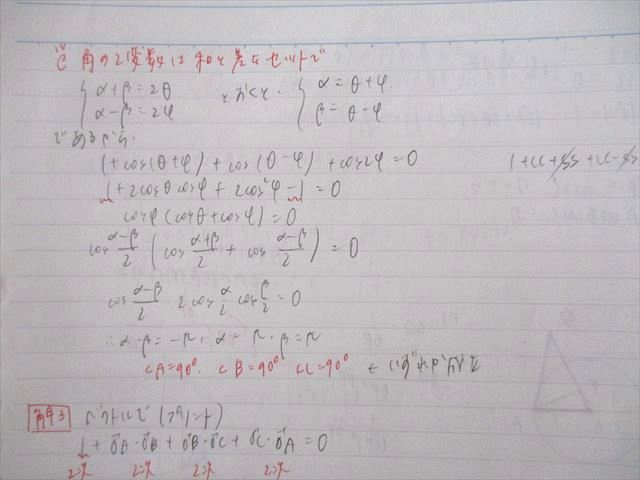 角の2変数は和と差をセットで
{ α+β=2θ
α-β=2φ
とおくと.
{ α=θ+φ.
β=θ-φ
であるから.
1+cos(θ+φ)+cos(θ-φ)+cos2φ=0
1+2cosθcosφ+2cos²φ-1=0
cosφ(cosθ+cosφ)=0
cos (α-β)/2 (cos (α+β)/2 + cos (α-β)/2)=0
cos (α-β)/2 · 2cos α/2 cos β/2=0
∴ α-β=-π, α=π, β=π
∠A=90°. ∠B=90° ∠C=90°
解3 ベクトルで
1+OA·OB+OB·OC+OC·OA=0
2次 2次 2次 2次